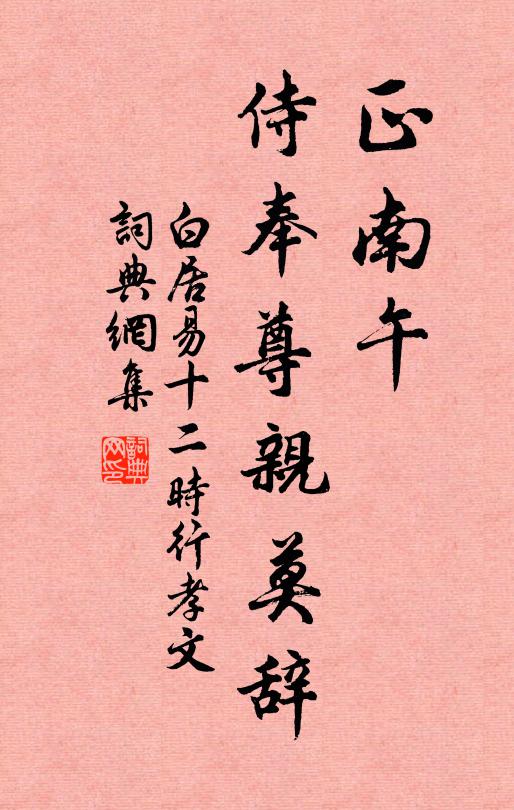 正南午
侍奉尊親莫辞
白居易十二時行孝文
詞典網集
詞典網印